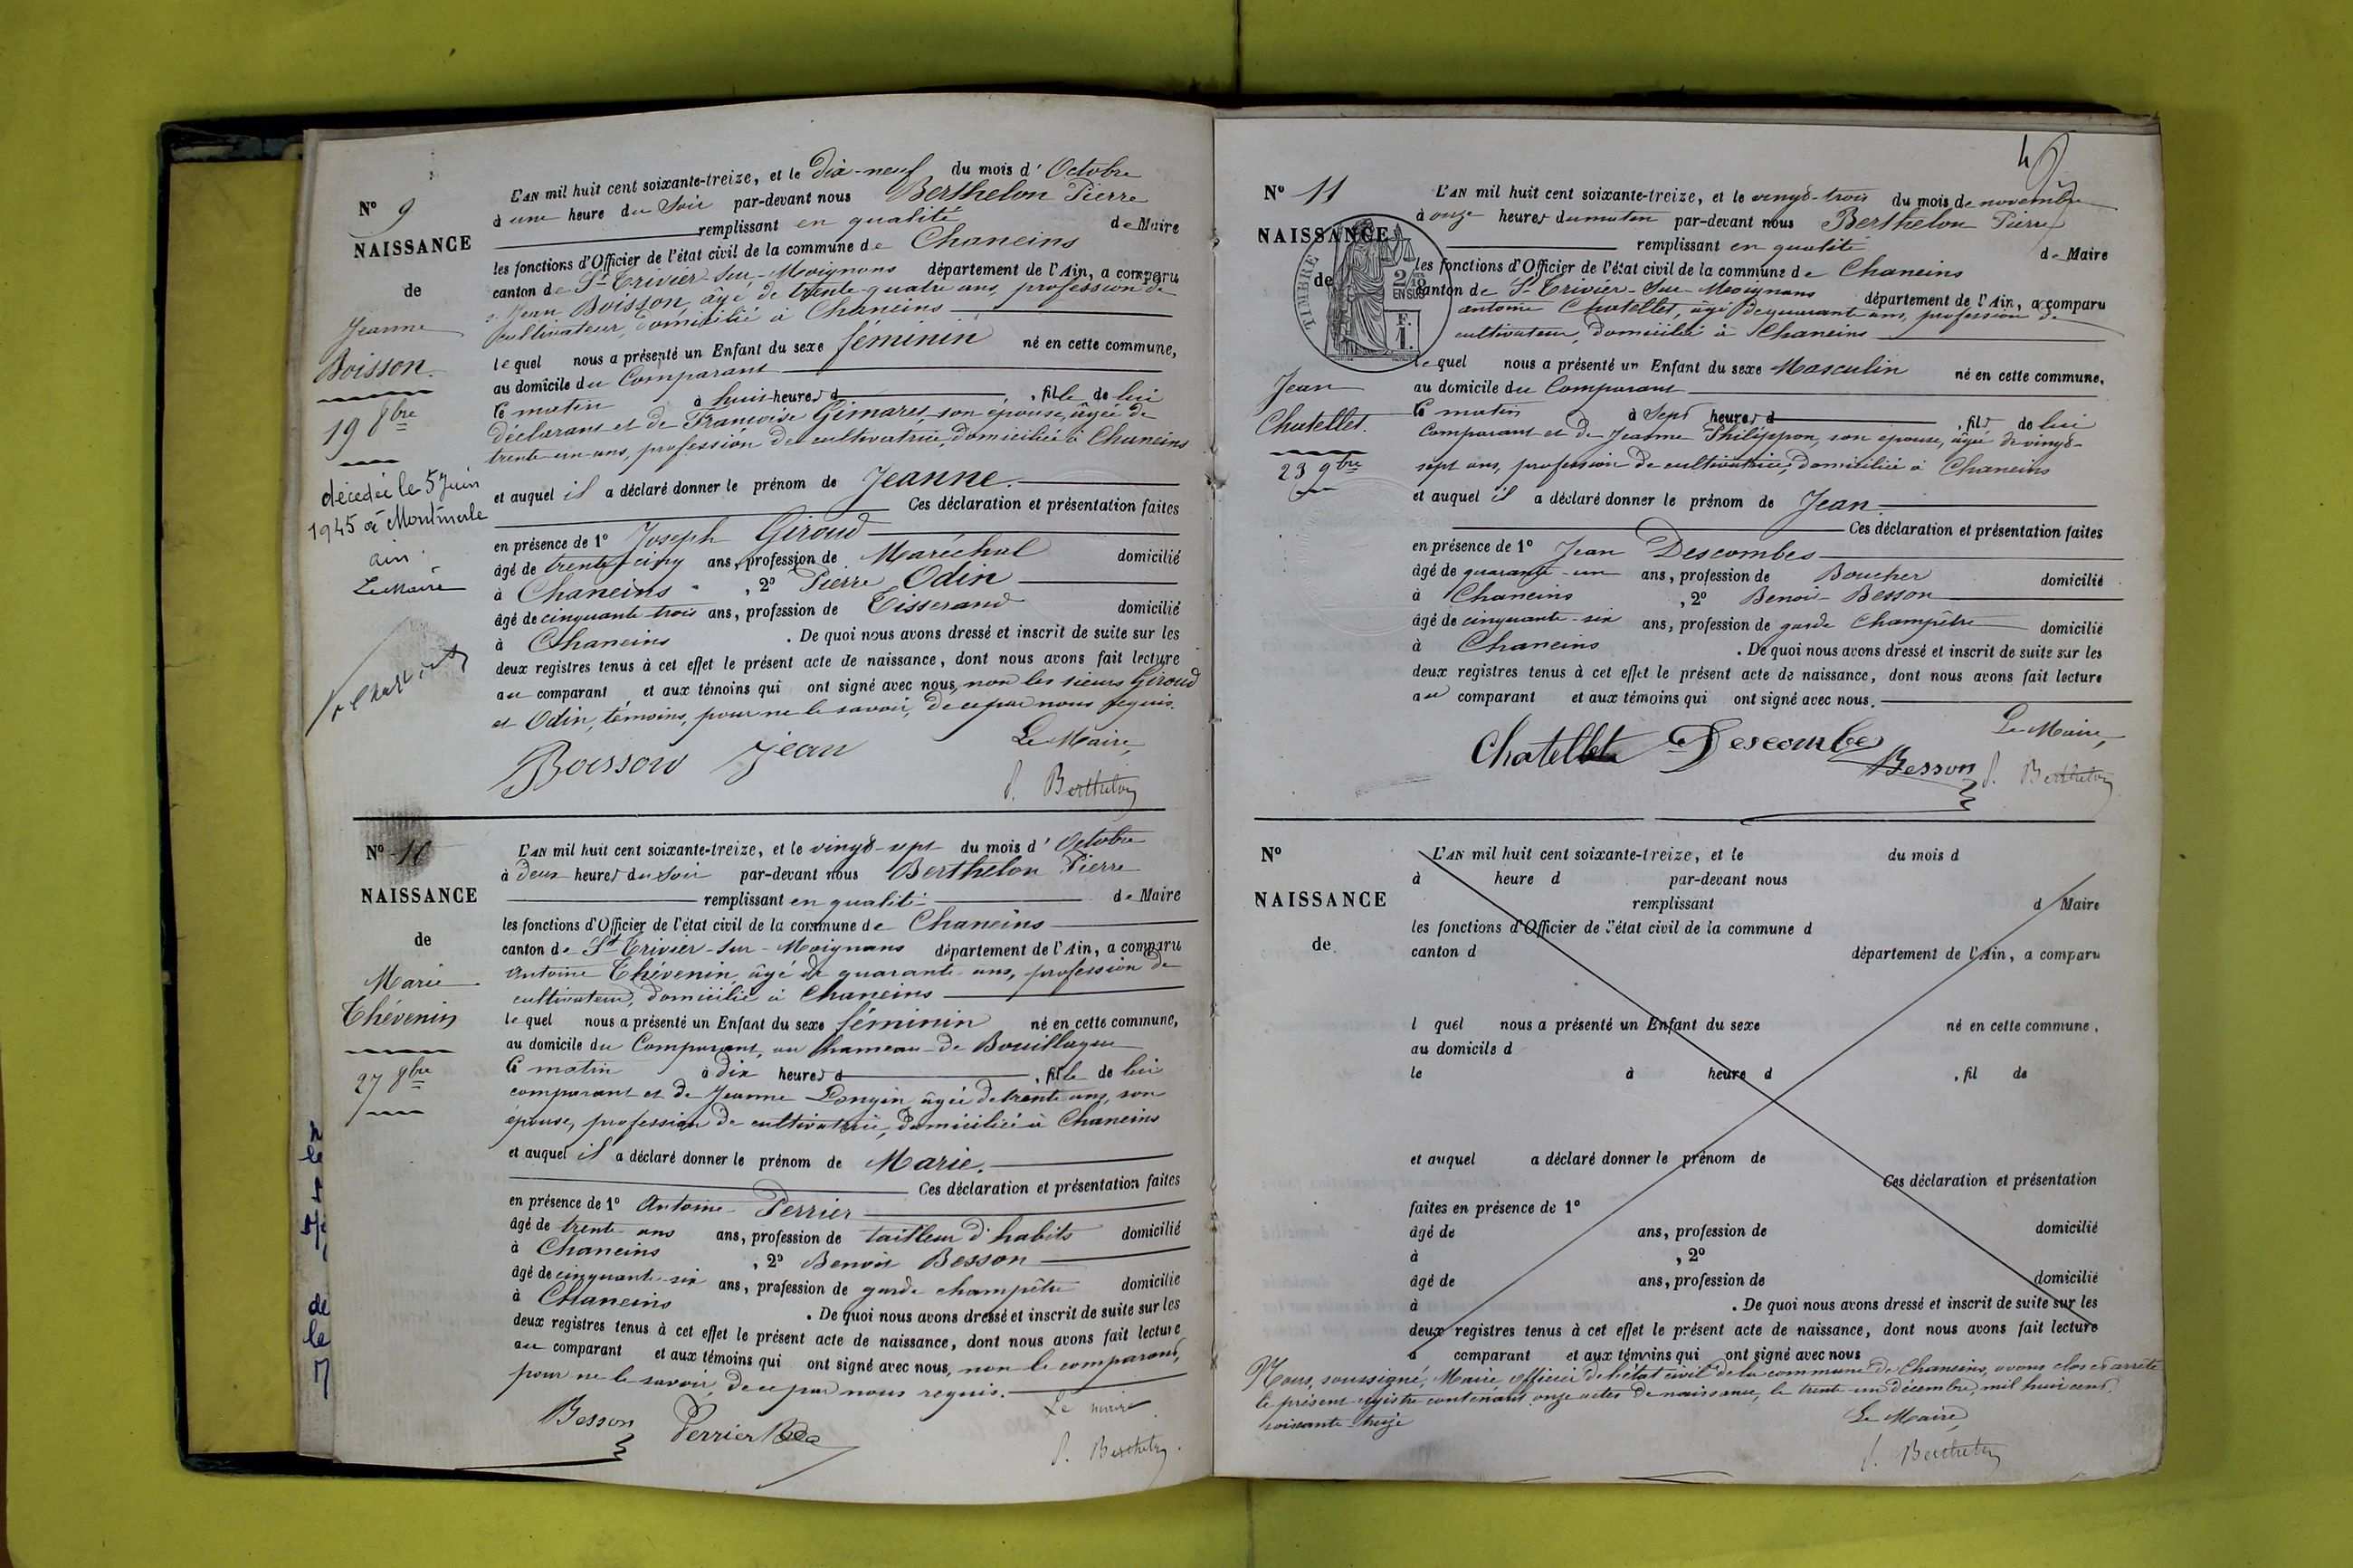 N° 9
NAISSANCE
de
Jeanne
Boisson.
19 8bre
décédée le 5 Juin
1945 à Montmerle
ain.
Le Maire
L'AN mil huit cent soixante-treize, et le dix-neuf du mois d' Octobre
à une heure du Soir par-devant nous Berthelon Pierre
remplissant en qualité de Maire
les fonctions d'Officier de l'état civil de la commune de Chaneins
canton de St Trivier-sur-Moignans département de l'Ain, a comparu
s. Jean Boisson, âgé de trente-quatre ans, profession de
cultivateur, domicilié à Chaneins
lequel nous a présenté un Enfant du sexe féminin né en cette commune,
au domicile du Comparant
Ce matin à huit heures d , fille de lui
déclarant et de Françoise Gimaret, son épouse, âgée de
trente-un ans, profession de cultivatrice, domiciliée à Chaneins
et auquel il a déclaré donner le prénom de Jeanne.
Ces déclaration et présentation faites
en présence de 1° Joseph Giroud
âgé de trente-cinq ans, profession de Maréchal domicilié
à Chaneins , 2° Pierre Odin
âgé de cinquante-trois ans, profession de Tisserand domicilié
à Chaneins . De quoi nous avons dressé et inscrit de suite sur les
deux registres tenus à cet effet le présent acte de naissance, dont nous avons fait lecture
au comparant et aux témoins qui ont signé avec nous, non les sieurs Giroud
et Odin, témoins, pour ne le savoir, de ce par nous requis.
Le Maire,
Boisson Jean
P. Berthelon
N° 10
NAISSANCE
de
Marie
Thévenin
27 8bre
L'AN mil huit cent soixante-treize, et le vingt-sept du mois d' Octobre
à deux heures du soir par-devant nous Berthelon Pierre
remplissant en qualité de Maire
les fonctions d'Officier de l'état civil de la commune de Chaneins
canton de St Trivier-sur-Moignans département de l'Ain, a comparu
Antoine Thévenin, âgé de quarante ans, profession de
cultivateur, domicilié à Chaneins
lequel nous a présenté un Enfant du sexe féminin né en cette commune,
au domicile du Comparant, au hameau de
Ce matin à dix heures d , fille de lui
comparant et de Jeanne Longin âgée de trente ans, son
épouse, profession de cultivatrice, domiciliée à Chaneins
et auquel il a déclaré donner le prénom de Marie.
Ces déclaration et présentation faites
en présence de 1° Antoine Perrier
âgé de trente ans ans, profession de tailleur d'habits domicilié
à Chaneins , 2° Benoit Besson
âgé de cinquante-six ans, profession de garde champêtre domicilié
à Chaneins . De quoi nous avons dressé et inscrit de suite sur les
deux registres tenus à cet effet le présent acte de naissance, dont nous avons fait lecture
au comparant et aux témoins qui ont signé avec nous, non le comparant,
pour ne le savoir, de ce par nous requis.
Le maire
Besson Perrier
P. Berthelon
4
N° 11
NAISSANCE
de
TIMBRE
2/10
EN SUS
F.
1.
Jean
Chatellet.
23 9bre
L'AN mil huit cent soixante-treize, et le vingt-trois du mois de novembre
à onze heures du matin par-devant nous Berthelon Pierre
remplissant en qualité de Maire
les fonctions d'Officier de l'état civil de la commune de Chaneins
canton de St Trivier-sur-Moignans département de l'Ain, a comparu
antoine Chatellet, âgé de quarante ans, profession de
cultivateur, domicilié à Chaneins
lequel nous a présenté un Enfant du sexe Masculin né en cette commune.
au domicile du Comparant
Ce matin à Sept heures d , fils de lui
Comparant et de Jeanne Philippon, son épouse, âgée de vingt-
sept ans, profession de cultivatrice, domiciliée à Chaneins
et auquel il a déclaré donner le prénom de Jean.
Ces déclaration et présentation faites
en présence de 1° Jean Descombes
âgé de quarante-un ans, profession de Boucher domicilié
à Chaneins , 2° Benoit Besson
âgé de cinquante-six ans, profession de garde Champêtre domicilié
à Chaneins . De quoi nous avons dressé et inscrit de suite sur les
deux registres tenus à cet effet le présent acte de naissance, dont nous avons fait lecture
au comparant et aux témoins qui ont signé avec nous.
Le Maire,
Chatellet Descombes
Besson P. Berthelon
N°
NAISSANCE
de
L'AN mil huit cent soixante-treize, et le du mois d
à heure d par-devant nous
remplissant d Maire
les fonctions d'Officier de l'état civil de la commune d
canton d département de l'Ain, a comparu
l quel nous a présenté un Enfant du sexe né en cette commune.
au domicile d
le à heure d , fil de
et auquel a déclaré donner le prénom de
Ces déclaration et présentation
faites en présence de 1°
âgé de ans, profession de domicilié
à , 2°
âgé de ans, profession de domicilié
à . De quoi nous avons dressé et inscrit de suite sur les
deux registres tenus à cet effet le présent acte de naissance, dont nous avons fait lecture
a comparant et aux témoins qui ont signé avec nous
Nous, soussigné, Maire officier de l'état civil de la commune de Chaneins, avons clos et arrêté
le présent registre contenant onze actes de naissance, le trente-un décembre, mil huit cent
soixante-treize
Le Maire,
P. Berthelon